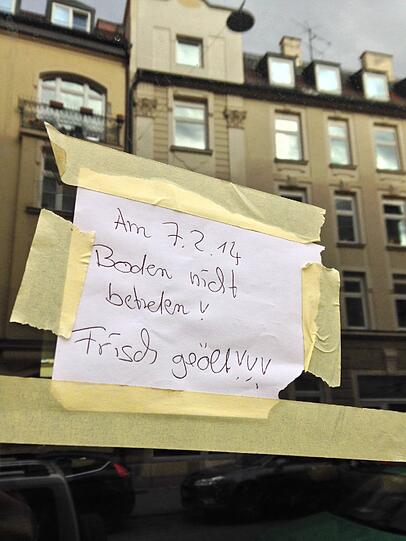 Am 7.2.14
Boden nicht
betreten!
Frisch geölt!!!